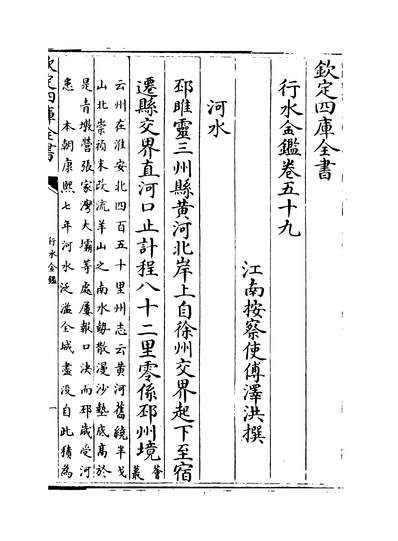 欽定四庫全書
行水金鑑卷五十九
江南按察使傅澤洪撰
河水
邳睢靈三州縣黄河北岸上自徐州交界起下至宿
遷縣交界直河口止計程八十二里零係邳州境薈叢
云州在淮安北四百五十里州志云黄河舊繞半戈
山北崇禎末改流羊山之南水勢散漫沙墊底髙於
是青墩營張家灣大壩等處屢報口決而邳歳受河
患 本朝康熙七年河水泛溢全城盡沒自此猶為
欽定四庫全書
行水金鑑
一